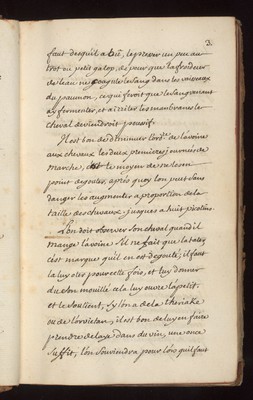 3.
faut desquil a bu, le presser un peu au
trot ou petit galop, de peur que la froideur
de l'eau ne coagule le sang dans les vaisseaux
du paumon, ce qui feroit que le sang venant
a y fermenter, et a irriter les membranes le
cheval deviendroit poussif.
Il est bon de diminuer l'ord.re de l'avoine
aux chevaux les deux premieres journées de
marche, c'est le moyen de ne les en
point degouter, aprés quoy l'on peut sans
danger les augmenter a proportion de la
taille des chevaux, jusques a huit picotins.
L'on doit observer son cheval quand il
mange l'avoine s'il ne fait que la taster
c'est marque qu'il en est degouté, il faut
la luy oter pour cette fois, et luy donner
du son mouillé cela luy ouvre l'apetit.
et le soutient, sy l'on a de la theriake
ou de l'orvietan, il est bon de luy en faire
prendre delayé dans du vin, une once
suffit, l'on souviendra pour lors qu'il faut